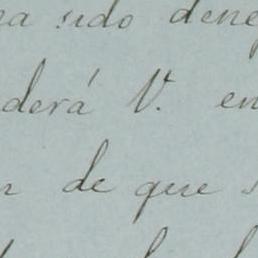 a sido dene
derá V. en
n de que s